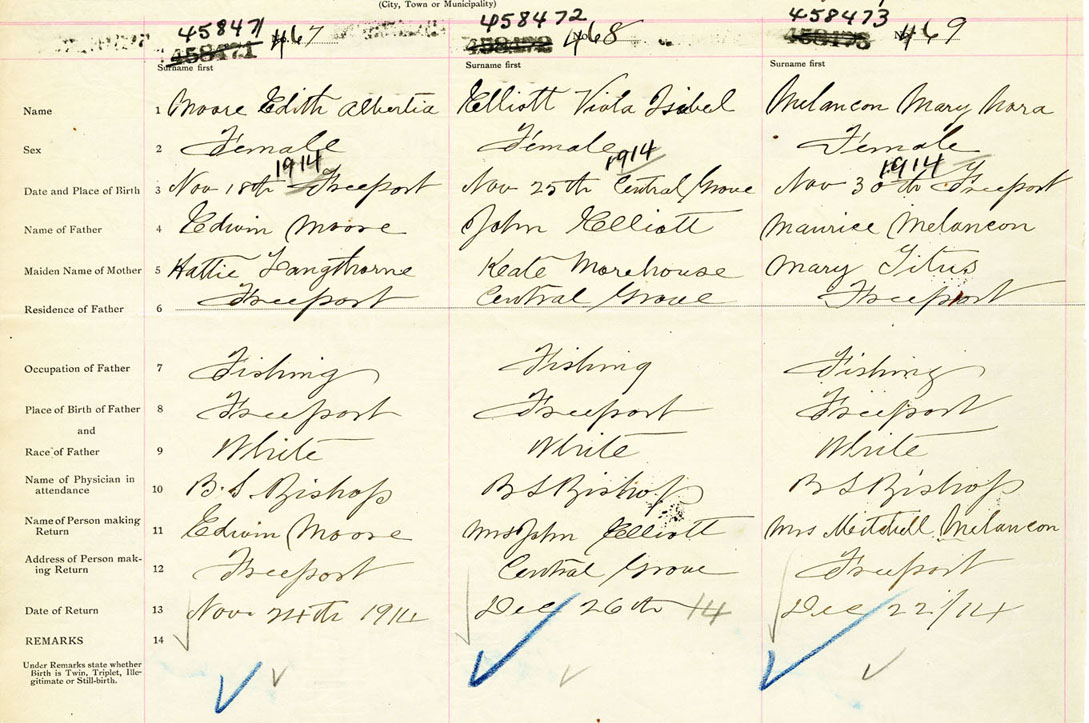 (City, Town or Municipality)
458471 458471 No. 467 458472 458472 No. 468 458473 458473 No. 469
Surname first Surname first Surname first
Name 1 Moore Edith Albertia Elliott Viola Isabel Melancon Mary Nora
Sex 2 Female Female Female
1914 1914 1914
Date and Place of Birth 3 Nov 18th Freeport Nov 25th Central Grove Nov 30th Freeport
Name of Father 4 Edwin Moore John Elliott Maurice Melancon
Maiden Name of Mother 5 Hattie Langthorne Keate Morehouse Mary Titus
Residence of Father 6 Freeport Central Grove Freeport
Occupation of Father 7 Fishing Fishing Fishing
Place of Birth of Father 8 Freeport Freeport Freeport
and
Race of Father 9 White White White
Name of Physician in
attendance 10 B. S Bishop B S Bishop B S Bishop
Name of Person making
Return 11 Edwin Moore Mrs John Elliott Mrs Mitchell Melancon
Address of Person mak-
ing Return 12 Freeport Central Grove Freeport
Date of Return 13 Nov 24th 1914 Dec 26th 14 Dec 22/14
REMARKS 14
Under Remarks state whether
Birth is Twin, Triplet, Ille-
gitimate or Still-birth.